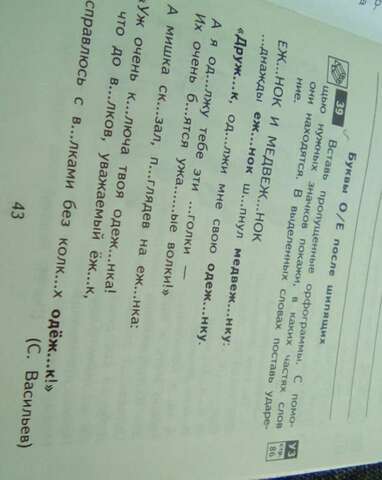 Буквы О/Е после шипящих
39 Вставь пропущенные орфограммы. С помо-
щью нужных значков покажи, в каких частях слов
они находятся. В выделенных словах поставь ударе-
ние.
У3
стр.
86
ЕЖ...НОК И МЕДВЕЖ...НОК
...днажды еж...нок ш...пнул медвеж...нку:
«Друж...к, од...лжи мне свою одеж...нку.
А я од...лжу тебе эти ...голки —
Их очень б...ятся ужа...ые волки!»
А мишка ск...зал, п...глядев на еж...нка:
«Уж очень к...люча твоя одеж...нка!
что до в...лков, уважаемый ёж...к,
справлюсь с в...лками без колк...х одёж...к!»
(С. Васильев)
43